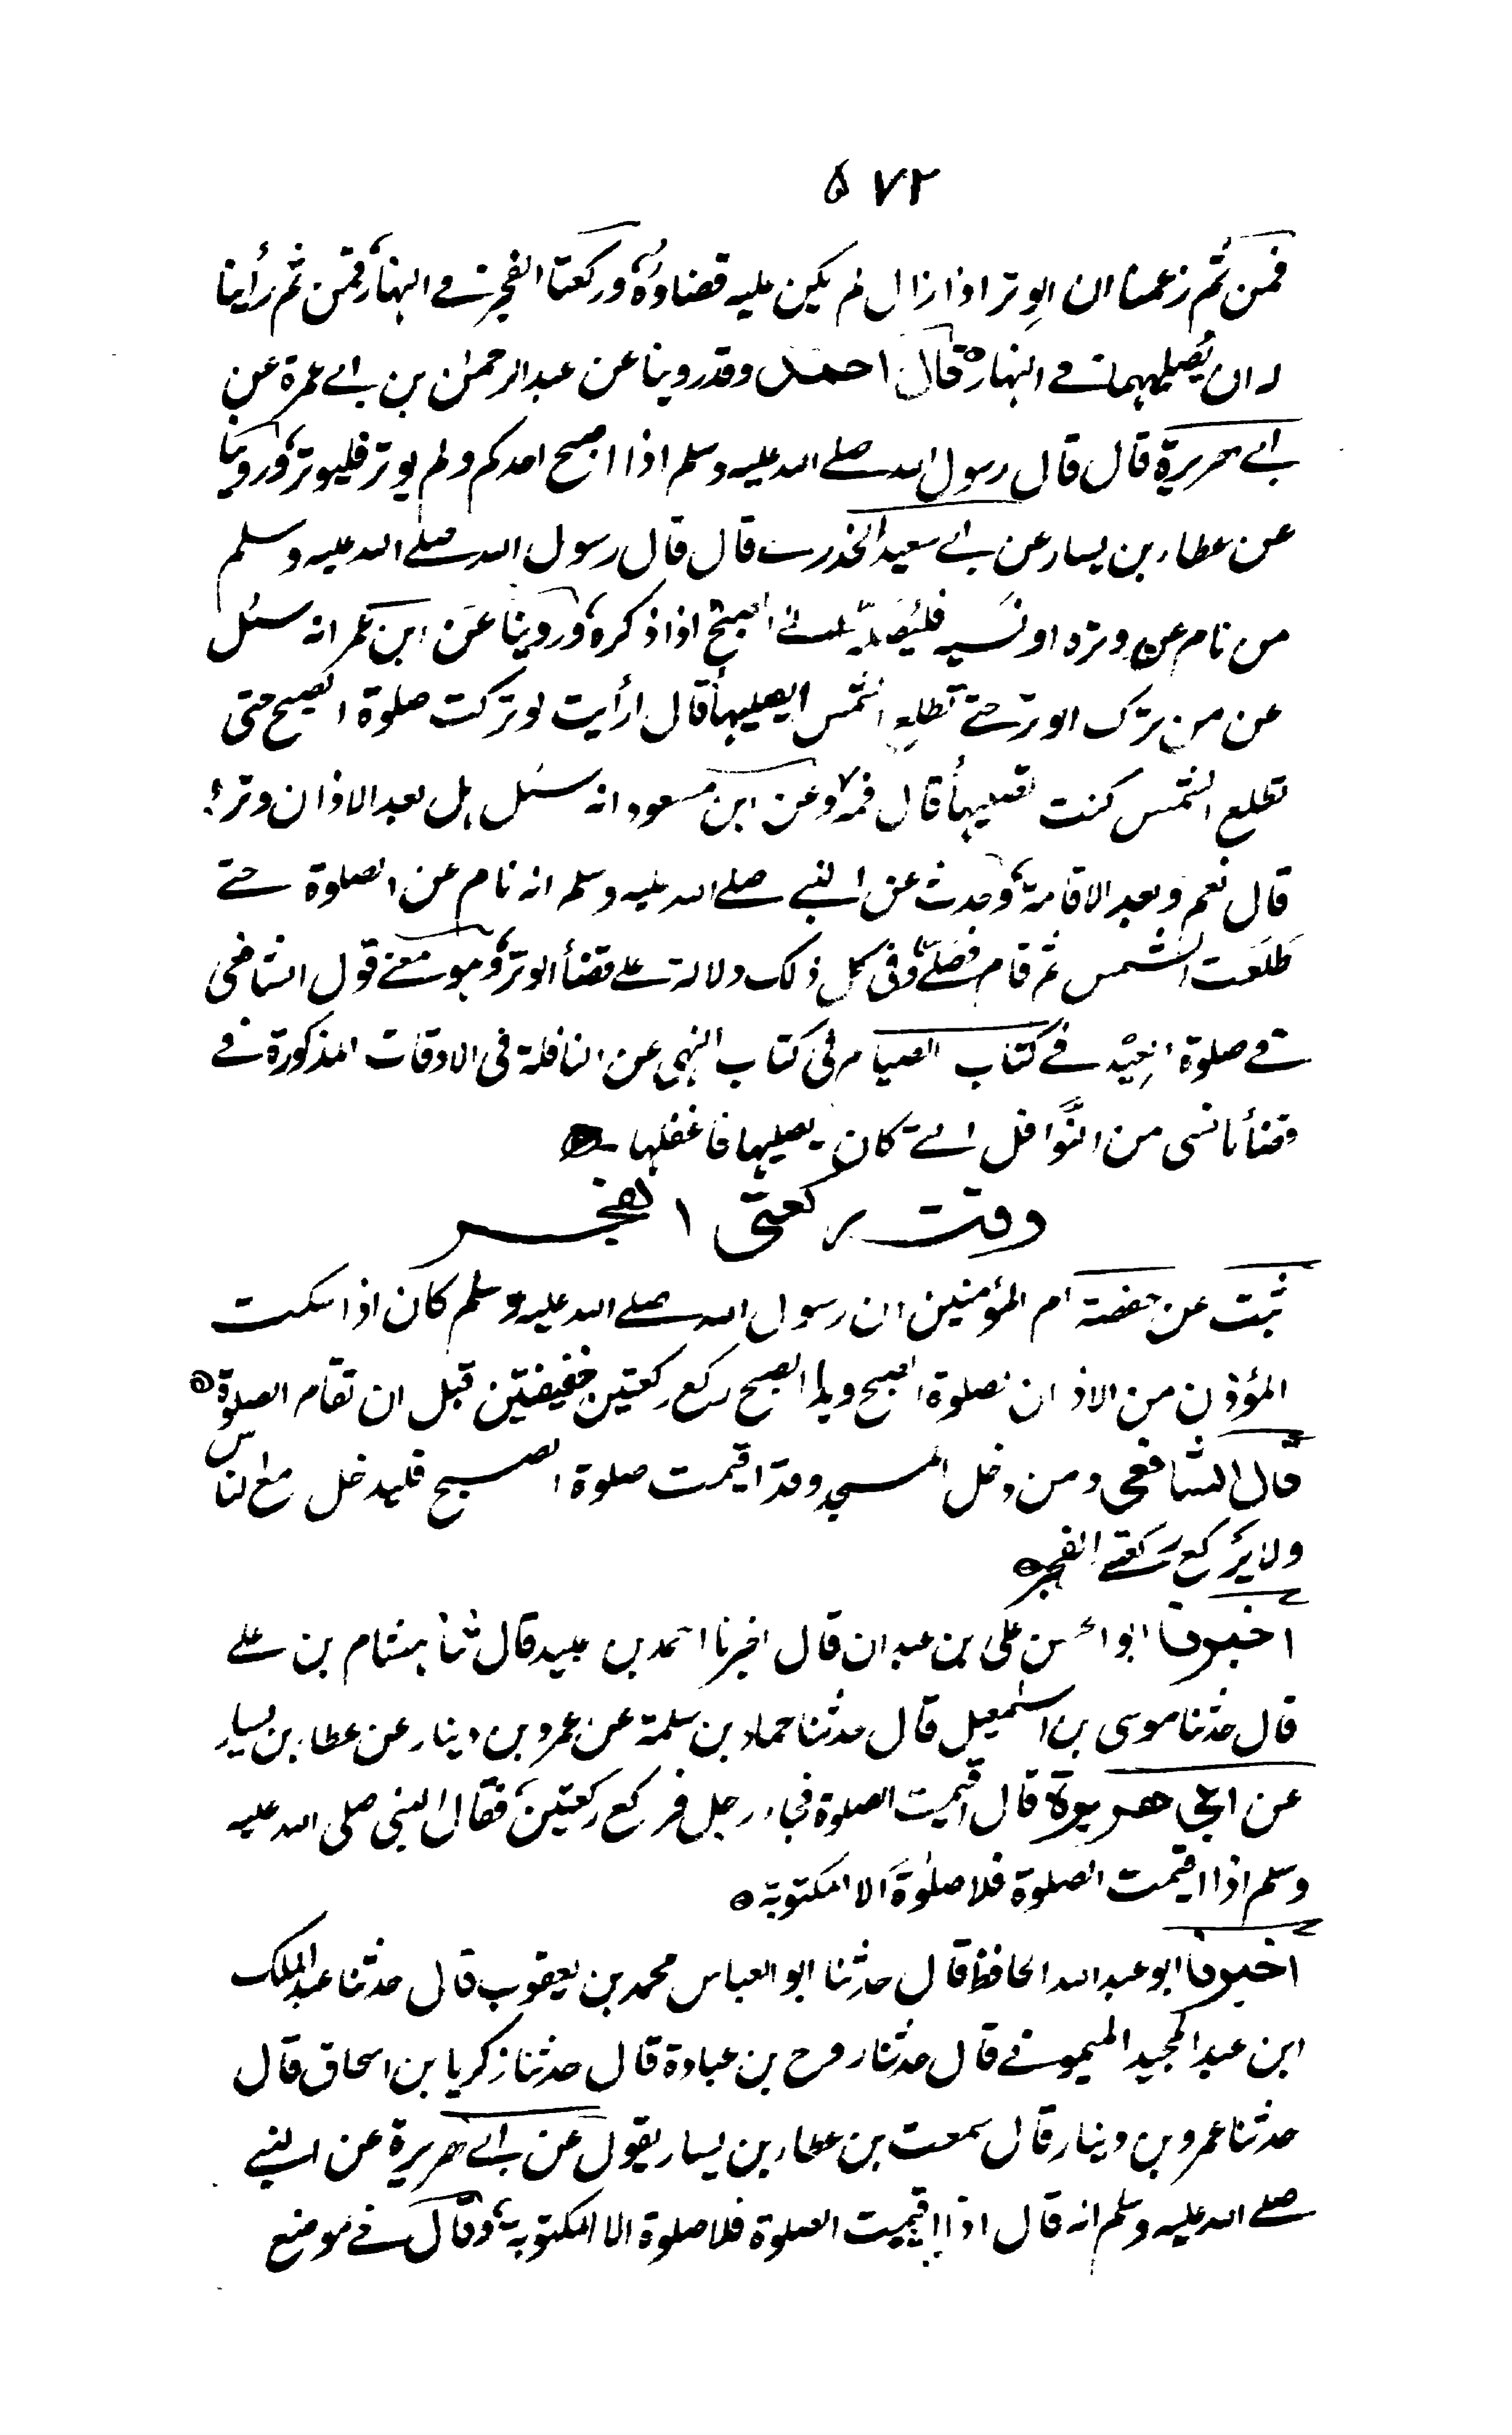 ٥٧٢
فمن ثم زعمنا ان الوتر اذا زال لم يكن عليه قضاؤه وركعتا الفجر في النهار فمن ثم رأينا
له ان يصليهما في النهار قال احمد وقد روينا عن عبد الرحمن بن ابي عمرة عن
ابي هريرة قال قال رسول الله صلى الله عليه وسلم اذا اصبح احدكم ولم يوتر فليوتر وروينا
عن عطاء بن يسار عن ابي سعيد الخدري قال قال رسول الله صلى الله عليه وسلم
من نام عن وتره او نسيه فليصله اذا اصبح اذا ذكره وروينا عن ابن عمر انه سئل
عن من ترك الوتر حتى تطلع الشمس ايصليها قال أرأيت لو تركت صلوة الصبح حتى
تطلع الشمس كنت تصليها قال فمه وعن ابن مسعود انه سئل هل بعد الاذان وتر
قال نعم وبعد الاقامة وحدث عن النبي صلى الله عليه وسلم انه نام عن الصلوة حتى
طلعت الشمس ثم قام فصلى وفي كل ذلك دلالة على قضأ الوتر وهو معنى قول الشافعي
في صلوة العيد في كتاب الصيام وفي كتاب النهي عن النافلة في الاوقات المذكورة في
قضأ ما نسى من النوافل التي كان يصليها فاغفلها
وقت ركعتي الفجر
ثبت عن حفصة ام المؤمنين ان رسول الله صلى الله عليه وسلم كان اذا سكت
المؤذن من الاذان لصلوة الصبح وبدا الصبح ركع ركعتين خفيفتين قبل ان تقام الصلوة
قال الشافعي ومن دخل المسجد وقد اقيمت صلوة الصبح فليدخل مع الناس
ولا يركع ركعتي الفجر
اخبرنا ابو الحسن علي بن عبدان قال اخبرنا احمد بن عبيد قال ثنا هشام بن علي
قال حدثنا موسى بن اسمعيل قال حدثنا حماد بن سلمة عن عمرو بن دينار عن عطاء بن يسار
عن ابي هريرة قال اقيمت الصلوة فجاء رجل فركع ركعتين فقال النبي صلى الله عليه
وسلم اذا اقيمت الصلوة فلا صلوة الا المكتوبة
اخبرنا ابو عبد الله الحافظ قال حدثنا ابو العباس محمد بن يعقوب قال حدثنا عبد الملك
ابن عبد المجيد الميموني قال حدثنا روح بن عبادة قال حدثنا زكريا بن اسحاق قال
حدثنا عمرو بن دينار قال سمعت بن عطاء بن يسار يقول عن ابي هريرة عن النبي
صلى الله عليه وسلم انه قال اذا اقيمت الصلوة فلا صلوة الا المكتوبة وقال في موضع